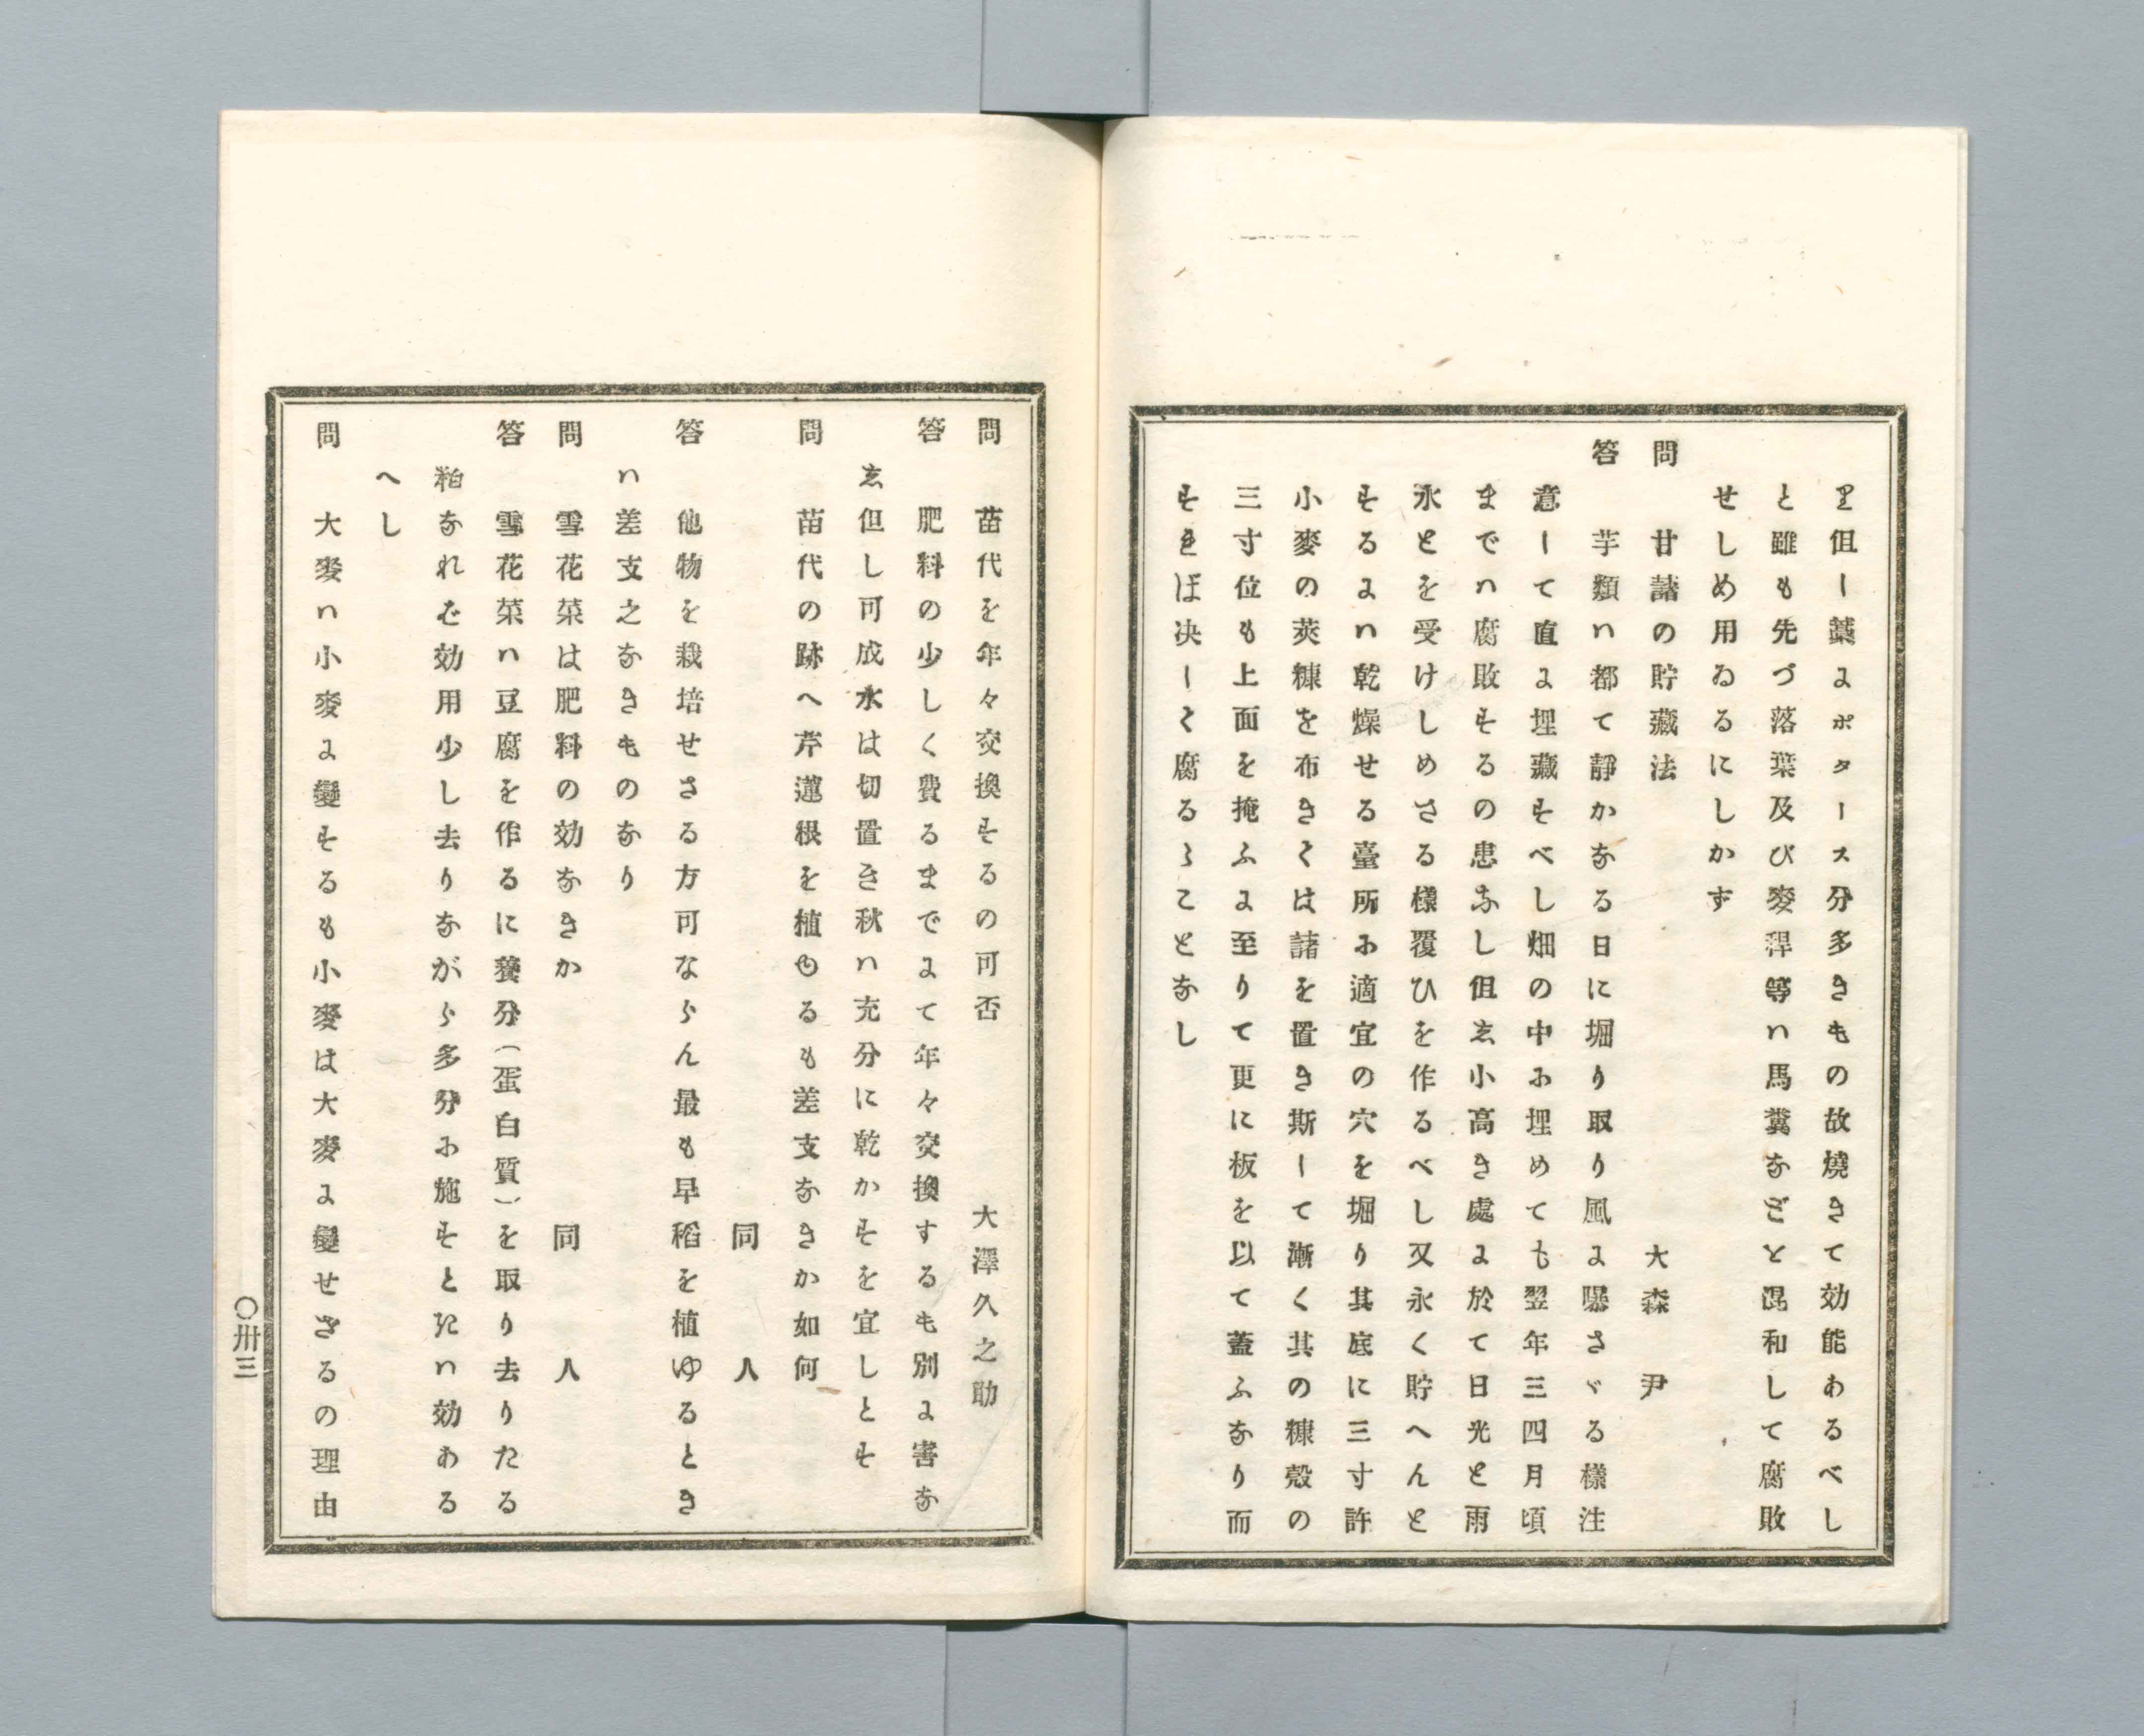 り但し藁にポタース分多きもの故燒きて効能あるべし
と雖も先づ落葉及び麥稈等ハ馬糞などと混和して腐敗
せしめ用ゐるにしかず
問　甘諸の貯藏法　大森　尹
答　芋類ハ都て靜かなる日に堀り取り風に曝さゞる樣注
意して直に埋藏すべし畑の中に埋めても翌年三四月頃
までハ腐敗するの患なし但し小高き處に於て日光と雨
氷とを受けしめさる樣覆ひを作るべし又永く貯へんと
するにハ乾燥せる臺所に適宜の穴を堀り其底に三寸許
小麥の莢糠を布きくは諸を置き斯して漸く其の糠殼の
三寸位も上面を掩ふに至りて更に板を以て蓋ふなり而
すれば决して腐るゝことなし
問　苗代を年々交換するの可否　大澤久之助
答　肥料の少しく費るまでにて年々交換するも別に害な
し但し可成水は切置き秋ハ充分に乾かすを宜しとす
問　苗代の跡へ芹蓮根を植ゆるも差支なきか如何
同　人
答　他物を栽培せさる方可ならん最も早稻を植ゆるとき
ハ差支之なきものなり
問　雪花菜は肥料の効なきか　同　人
答　雪花菜ハ豆腐を作るに養分（蛋白質）を取り去りたる
粕なれど効用少し去りながら多分に施すときハ効ある
へし
問　大麥ハ小麥に變するも小麥は大麥に變せざるの理由
〇卅三